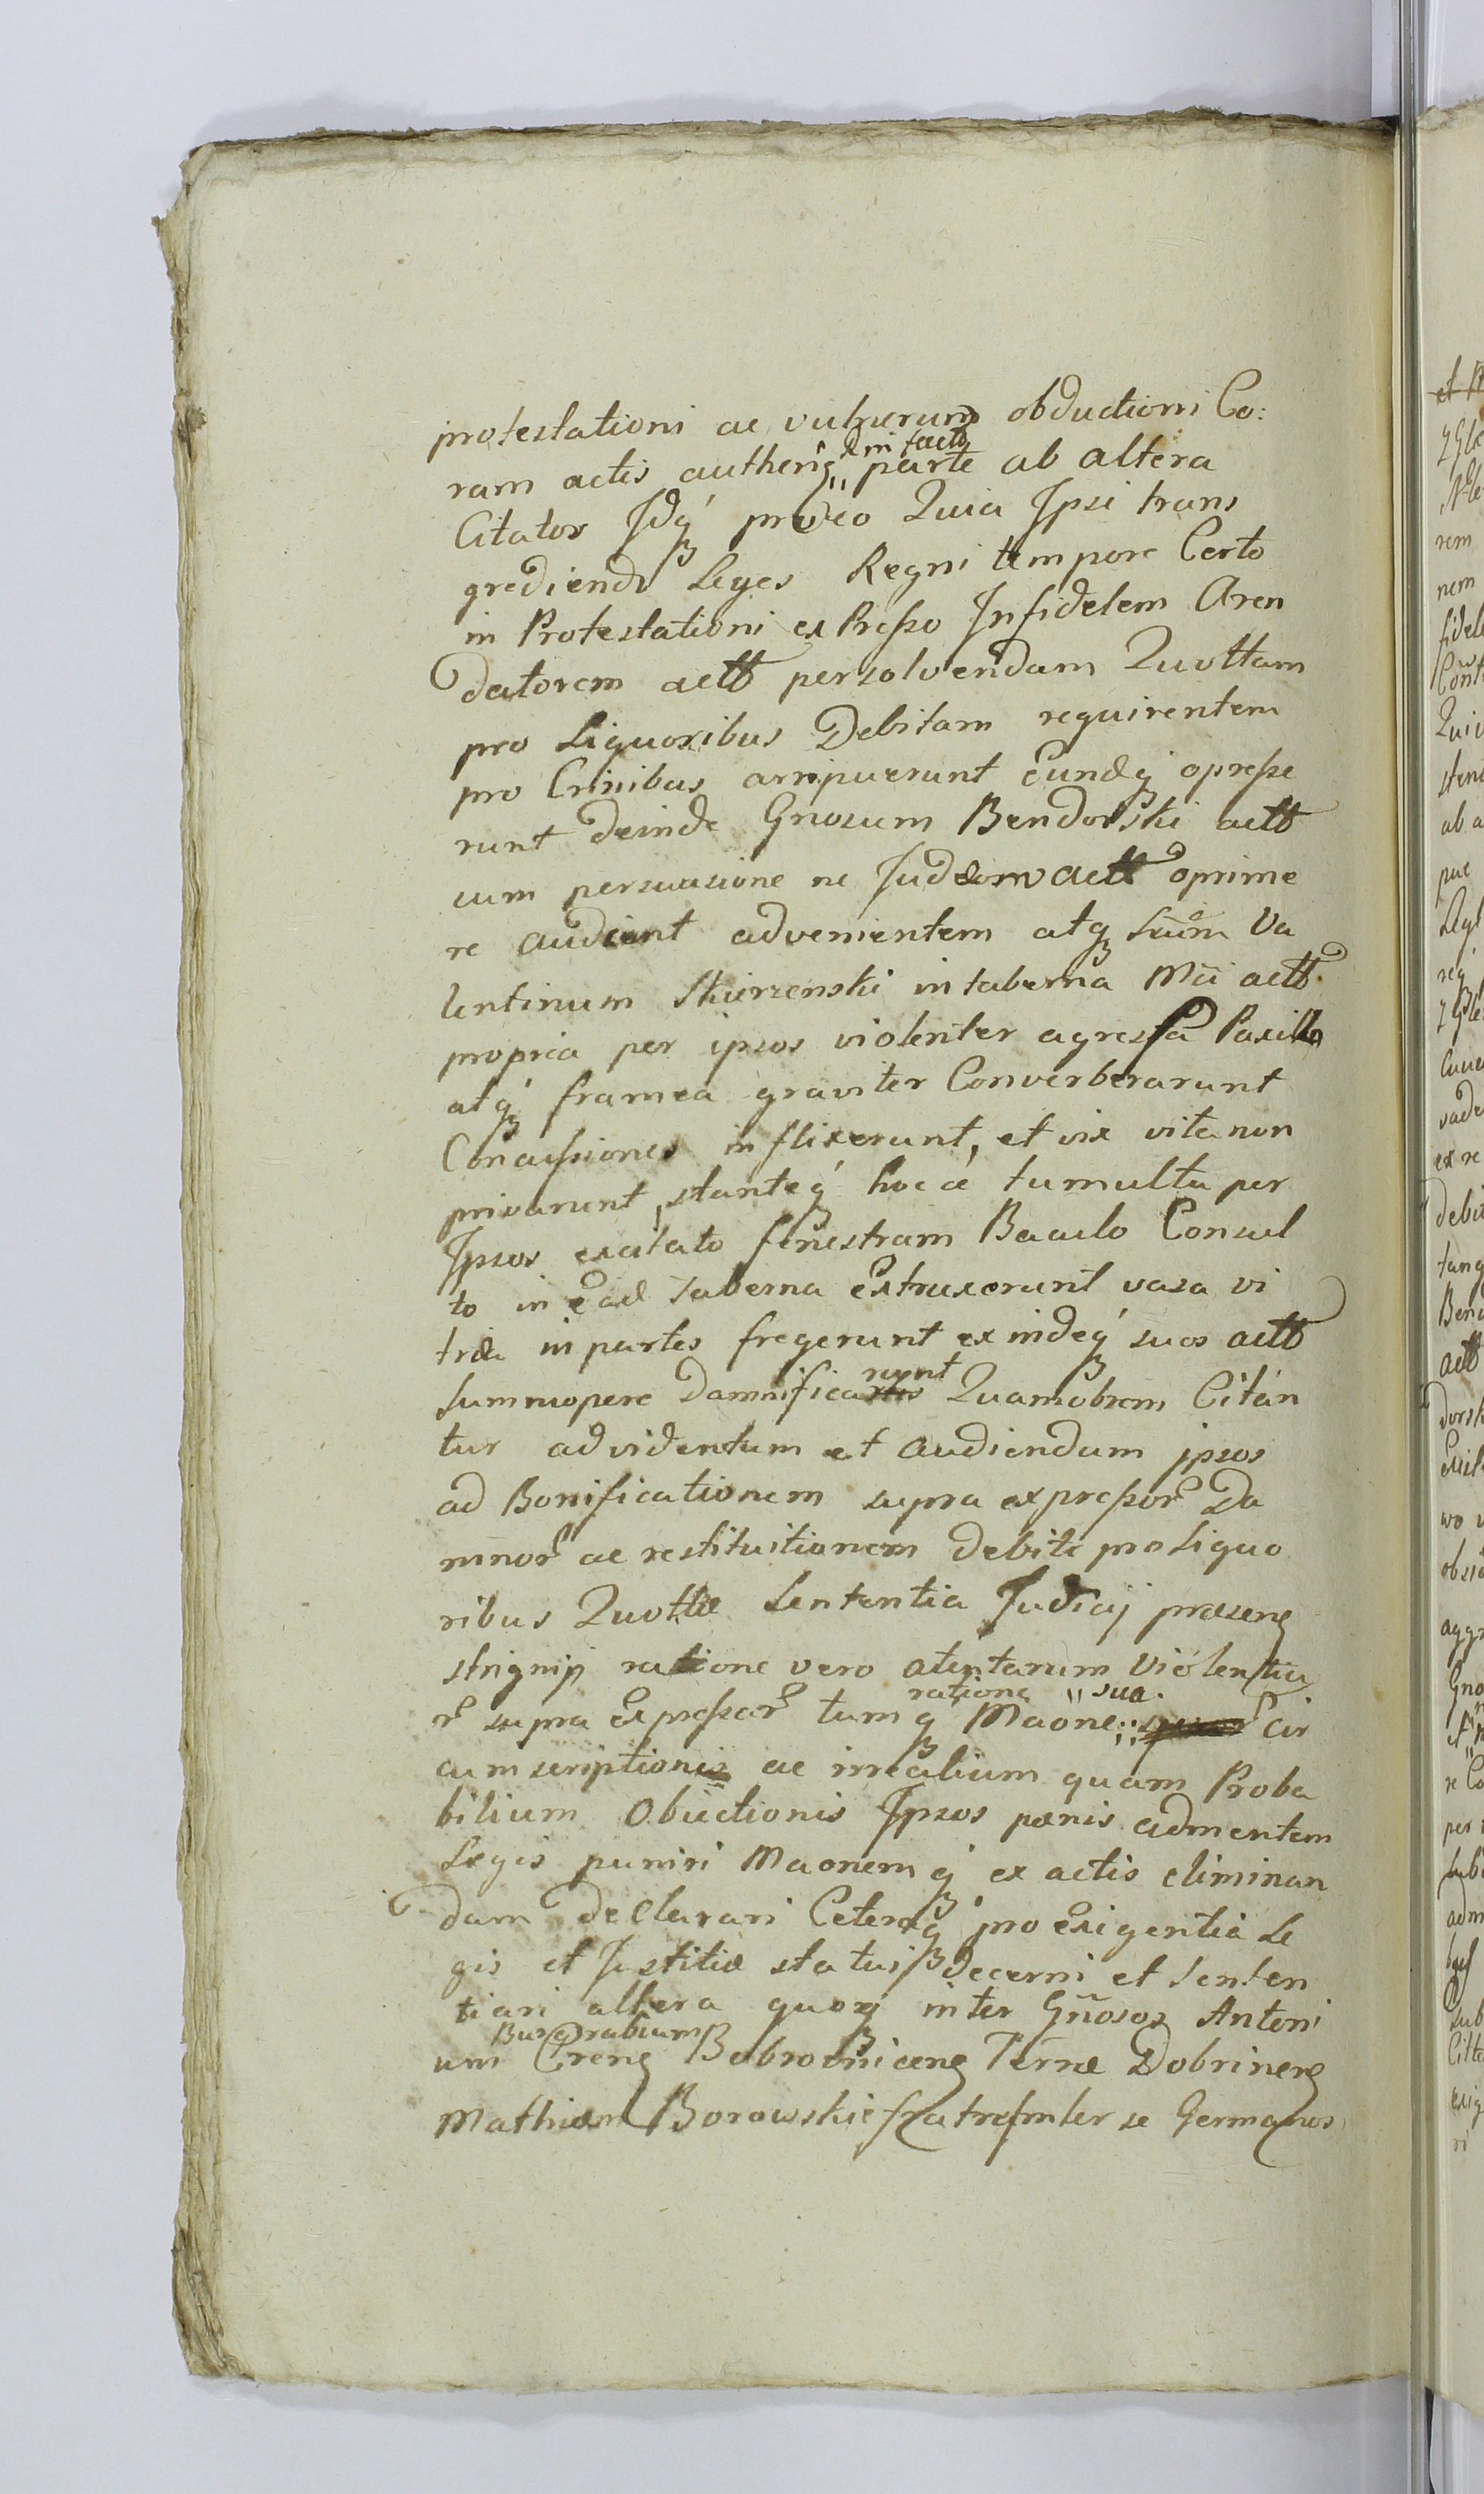 protestationi ac vulnerum obductioni Co:
ram actis autheng & in facto parte ab altera
Citator Jdq pro eo Quia Ipsi trans
grediendo Leges Regni tempore Certo
in Protestationi ex Presso Infidelem Aren
datorem actt persolvendam Quottam
pro Liquoribus Debitam requirentem
pro Crinibus arripuerunt Eundq opresse
runt deinde Gnosum Bendorski actt
cum persuasione ne Judæom actt oprime
re audeant advenientem atq Lium Va
lentinum Skierzenski in taberna Mci actt
propria per ipsos violenter agressa Paxillo
atq framea graviter Converberarunt
Concussiones inflixerunt, et vix vita non
privarunt, stanteq hocce tumultu per
Ipsos excitato fenestram Baculo Consul
to in Ead taberna extruxerunt vasa vi
trea in partes fregerunt exindeq suos actt
summopere Damnificarunt Quamobrem Citan
tur ad videndum et audiendum ipsos
ad Bonificationem supra expressor Da
mnor ac restituitionem debite pro Liquo
ribus Quottæ Sententia Judicij præseng
stringnij ratione vero atentarum Violentia
r supra Expressar tumq ratione Maone sua Cir
cumscriptionis ac irrealium quam Proba
bilium Obiectionis Ipsos pænis admentem
Legis puniri Maonemq ex actis eliminan
dam declarari Ceteraq pro Exigentia Le
gis et Justitiæ statui decerni et senten
tiari altera quoq inter Gnosos Antoni
um Burgrabium Creng Bobrovniceng Terræ Dobrineng
Mathiam Borowskie fratres inter se Germanos